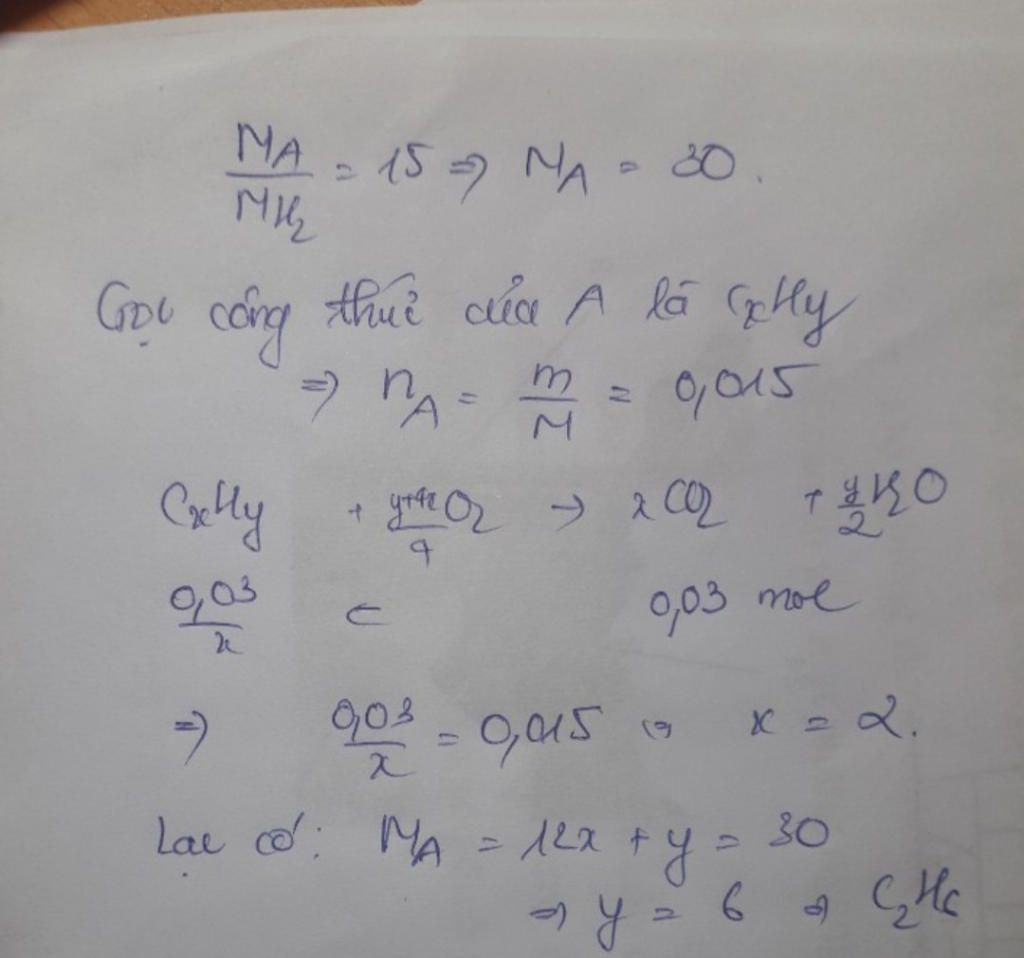 M_A / M_H₂ = 15 ⇒ M_A = 30.
Gọi công thức của A là CxHy
⇒ n_A = m/M = 0,015
CxHy + (y+4x)/4 O₂ → x CO₂ + y/2 H₂O
0,03/x ← 0,03 mol
⇒ 0,03/x = 0,015 ⇔ x = 2.
Lại có: M_A = 12x + y = 30
⇒ y = 6 ⇒ C₂H₆